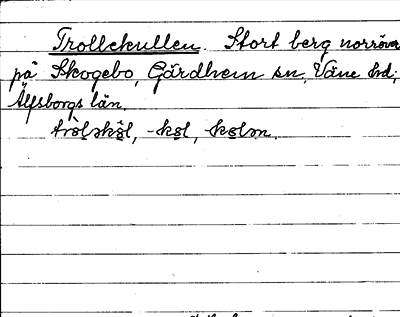 Trollekullen. Stort berg norröver
på Skogebo, Gärdhem sn, Väne hd;
Älfsborgs län.
tròləkùl, -kul, -kulən.